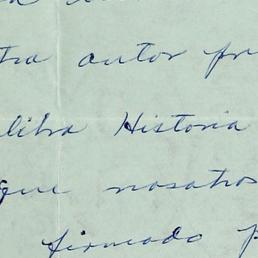 tra autor pr
libra Historia
que nosotros
firmado p